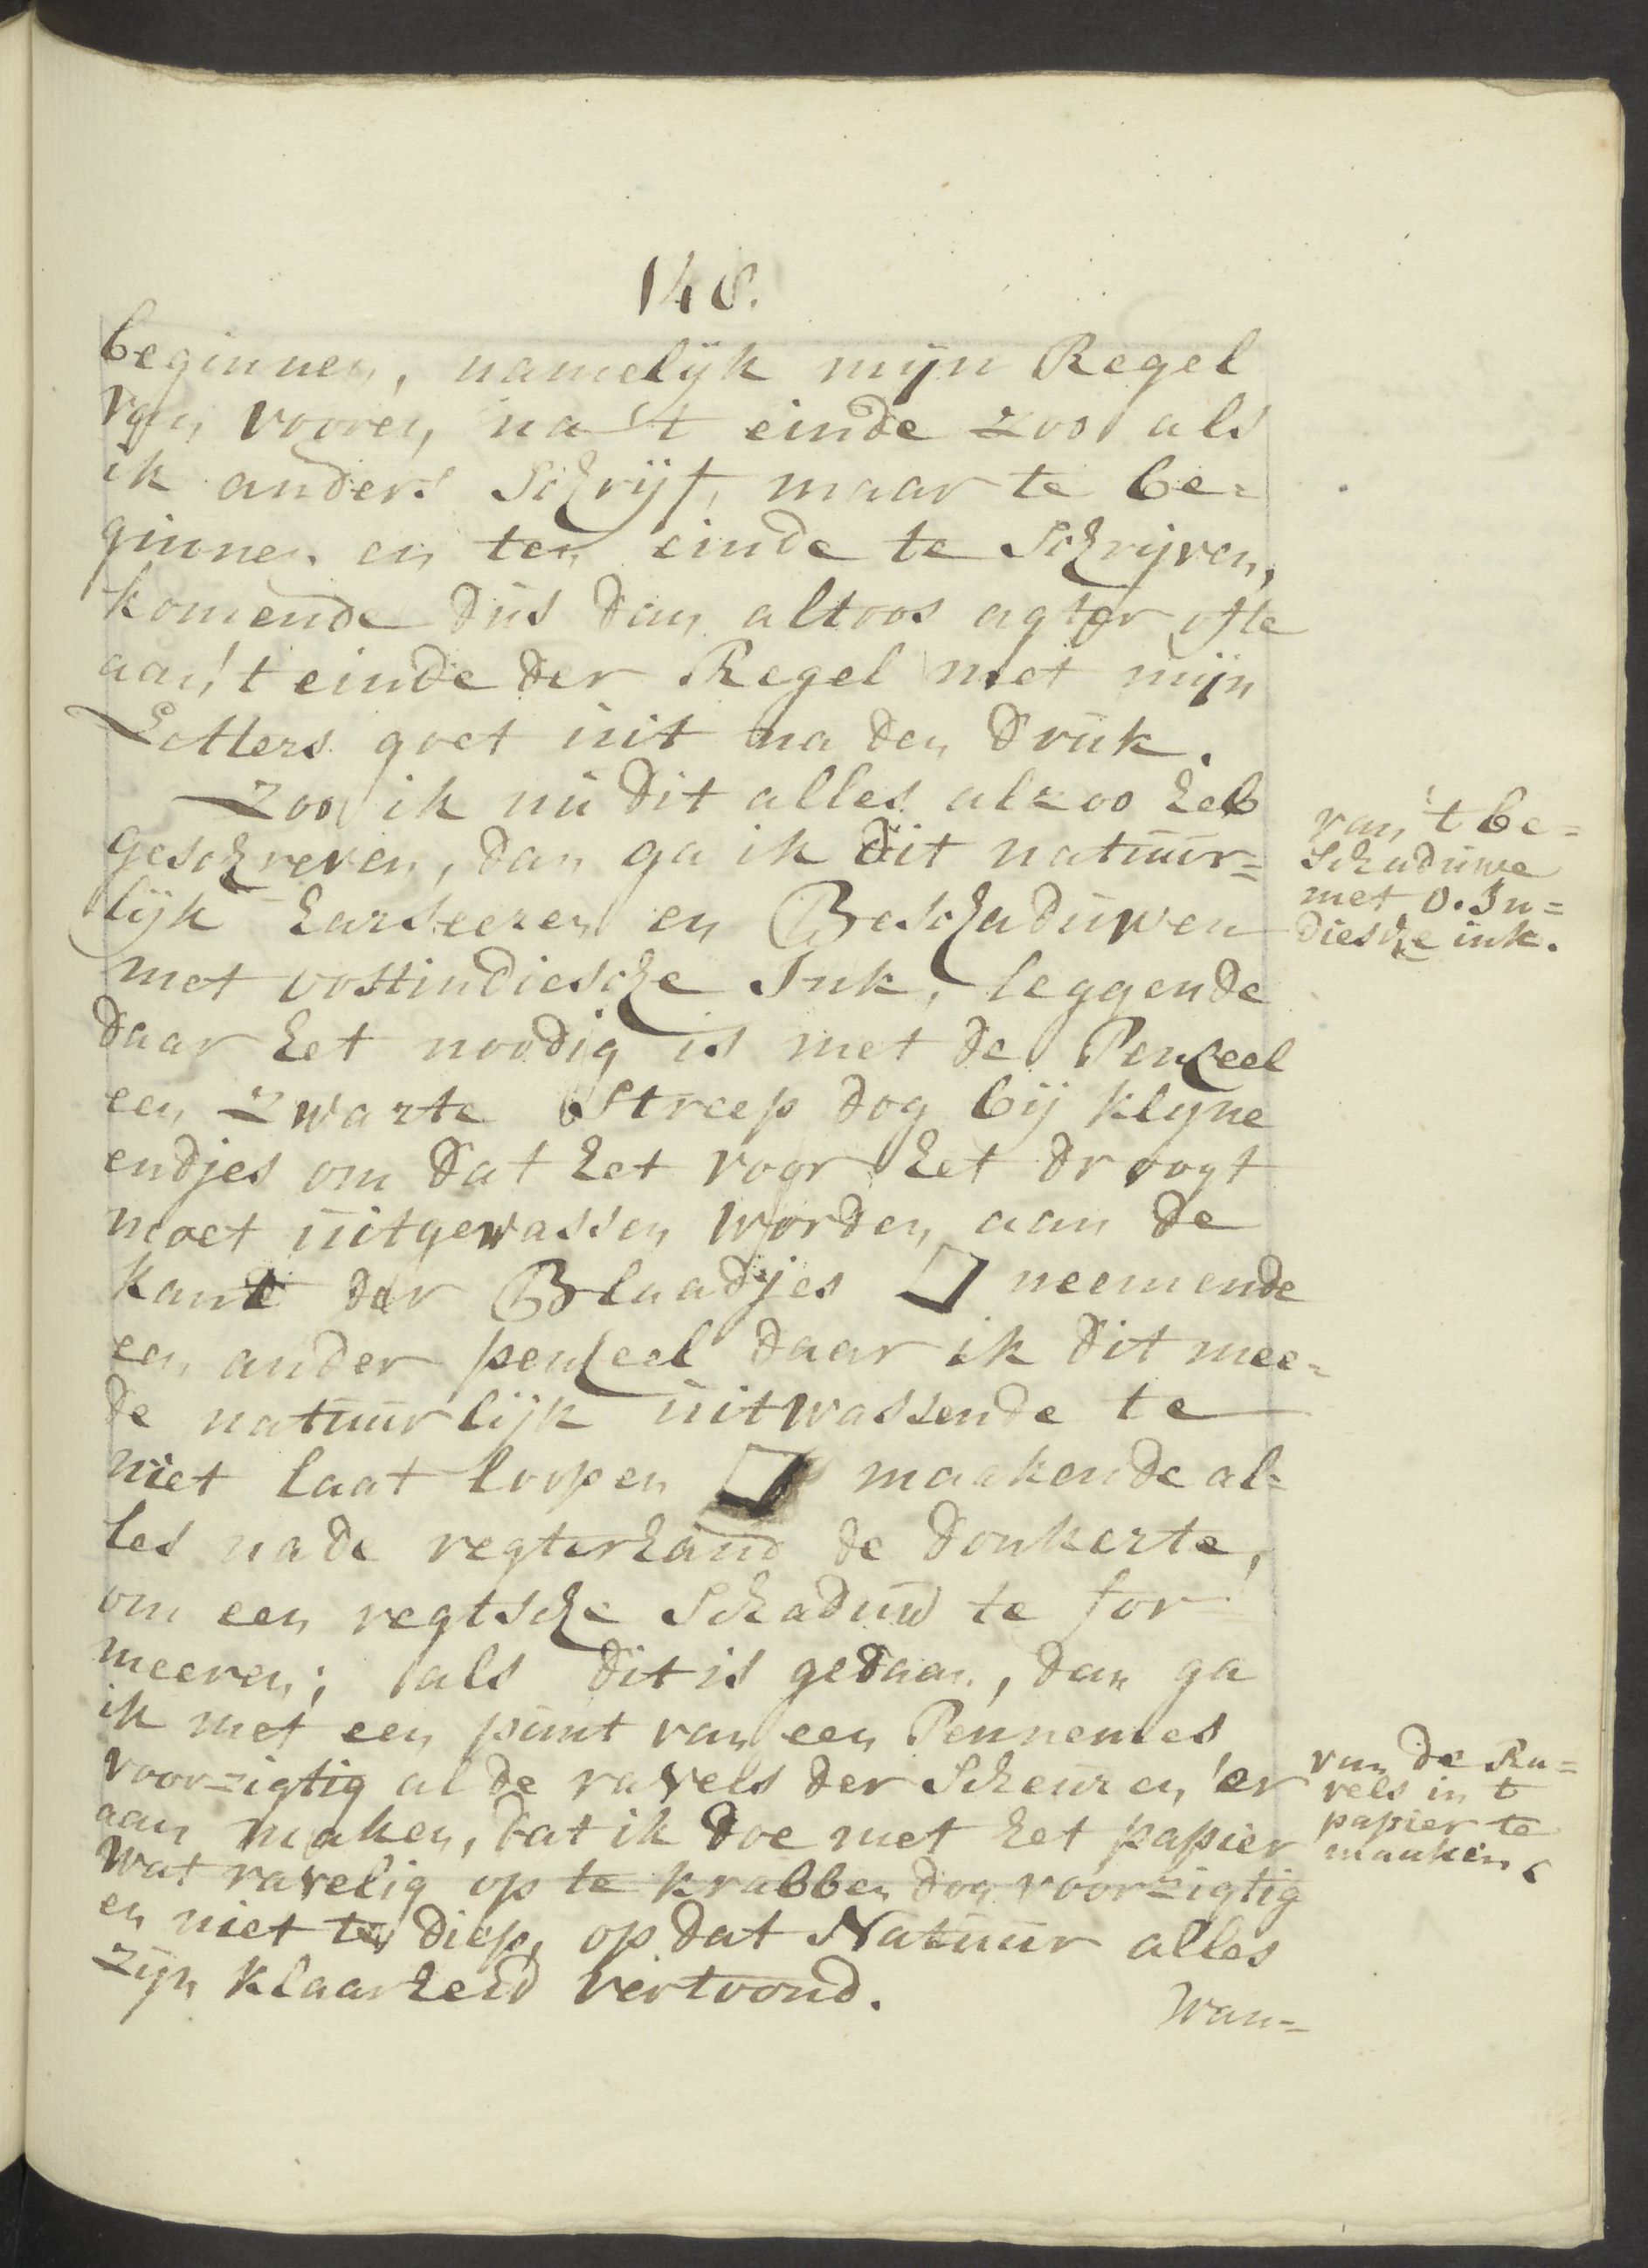 148.
beginnen, namelijk mijn Regel
van vooren na 't einde zoo als
ik anders Schrijf, maar te be=
ginnen en ten einde te Schrijven,
komende dus dan altoos agter ofte
aan 't einde der Regel met mijn
Letters goet uit na den druk.
Zoo ik nu dit alles alzoo heb
geschreven, dan ga ik dit natuur=
lijk harseeren en Beschaduwen
met oostindiesche Ink, leggende
daar het noodig is met de Penseel
een zwarte Streep dog bij klijne
endjes om dat het voor het droogt
moet uitgewassen worden aan de
kant der Blaadjes neemende
een ander penseel daar ik dit mee=
de natuurlijk uitwassende te
niet laat loopen maakende al=
les na de regterhand de donkerte,
om een regtsche Schaduw te for
meeren; als dit is gedaan, dan ga
ik met een punt van een Pennemes
voorzigtig al de ravels der Scheuren 'er
aan maken, dat ik doe met het papier
wat ravelig op te krabben dog voorzigtig
en niet te diep, op dat Natuur alles
zijn klaarheid vertoond.
Wan=
van 't be=
Schaduwe
met O. In=
diesche ink.
van de Ra=
vels in t
papier te
maaken.